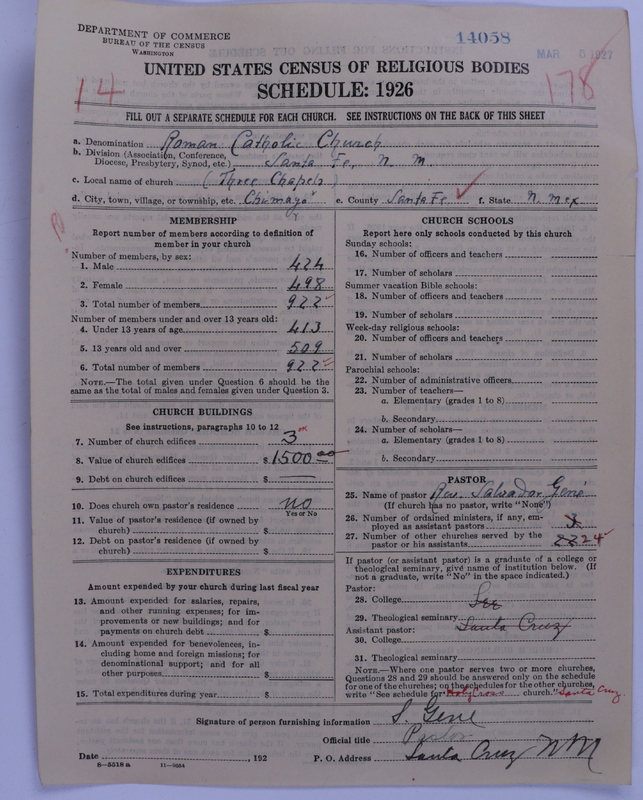 DEPARTMENT OF COMMERCE
BUREAU OF THE CENSUS
WASHINGTON
14058
MAR 5 1927
UNITED STATES CENSUS OF RELIGIOUS BODIES
SCHEDULE: 1926
14
178
FILL OUT A SEPARATE SCHEDULE FOR EACH CHURCH. SEE INSTRUCTIONS ON THE BACK OF THIS SHEET
a. Denomination Roman Catholic Church
b. Division (Association, Conference,
Diocese, Presbytery, Synod, etc.) Santa Fe, N. M.
c. Local name of church (Three Chapels)
d. City, town, village, or township, etc. Chimayo e. County Santa Fe f. State N. Mex
MEMBERSHIP
Report number of members according to definition of
member in your church
Number of members, by sex:
1. Male 424
2. Female 498
3. Total number of members 922
Number of members under and over 13 years old:
4. Under 13 years of age 413
5. 13 years old and over 509
6. Total number of members 922
NOTE.—The total given under Question 6 should be
same as the total of males and females given under Question 3.
CHURCH BUILDINGS
See instructions, paragraphs 10 to 12
7. Number of church edifices 3
8. Value of church edifices $ 1500.00
9. Debt on church edifices $ —
10. Does church own pastor's residence no
Yes or No
11. Value of pastor's residence (if owned by
church) $
12. Debt on pastor's residence (if owned by
church) $
EXPENDITURES
Amount expended by your church during last fiscal year
13. Amount expended for salaries, repairs,
and other running expenses; for im-
provements or new buildings; and for
payments on church debt $
14. Amount expended for benevolences, in-
cluding home and foreign missions; for
denominational support; and for all
other purposes $
15. Total expenditures during year $
CHURCH SCHOOLS
Report here only schools conducted by this church
Sunday schools:
16. Number of officers and teachers
17. Number of scholars
Summer vacation Bible schools:
18. Number of officers and teachers
19. Number of scholars
Week-day religious schools:
20. Number of officers and teachers
21. Number of scholars
Parochial schools:
22. Number of administrative officers
23. Number of teachers—
a. Elementary (grades 1 to 8)
b. Secondary
24. Number of scholars—
a. Elementary (grades 1 to 8)
b. Secondary
PASTOR
25. Name of pastor Rev. Salvador Gené
(If church has no pastor, write "None")
26. Number of ordained ministers, if any, em-
ployed as assistant pastors 3
27. Number of other churches served by the
pastor or his assistants 24
If pastor (or assistant pastor) is a graduate of a college or
theological seminary, give name of institution below. (If
not a graduate, write "No" in the space indicated.)
Pastor:
28. College See
29. Theological seminary Santa Cruz
Assistant pastor:
30. College
31. Theological seminary
NOTE.—Where one pastor serves two or more churches,
Questions 28 and 29 should be answered only on the schedule
for one of the churches; on the schedules for the other churches,
write "See schedule for Holy Cross church." Santa Cruz.
Signature of person furnishing information S. Gene
Official title Pastor
Date , 192 P. O. Address Santa Cruz NM
8—5518 a 11—9664